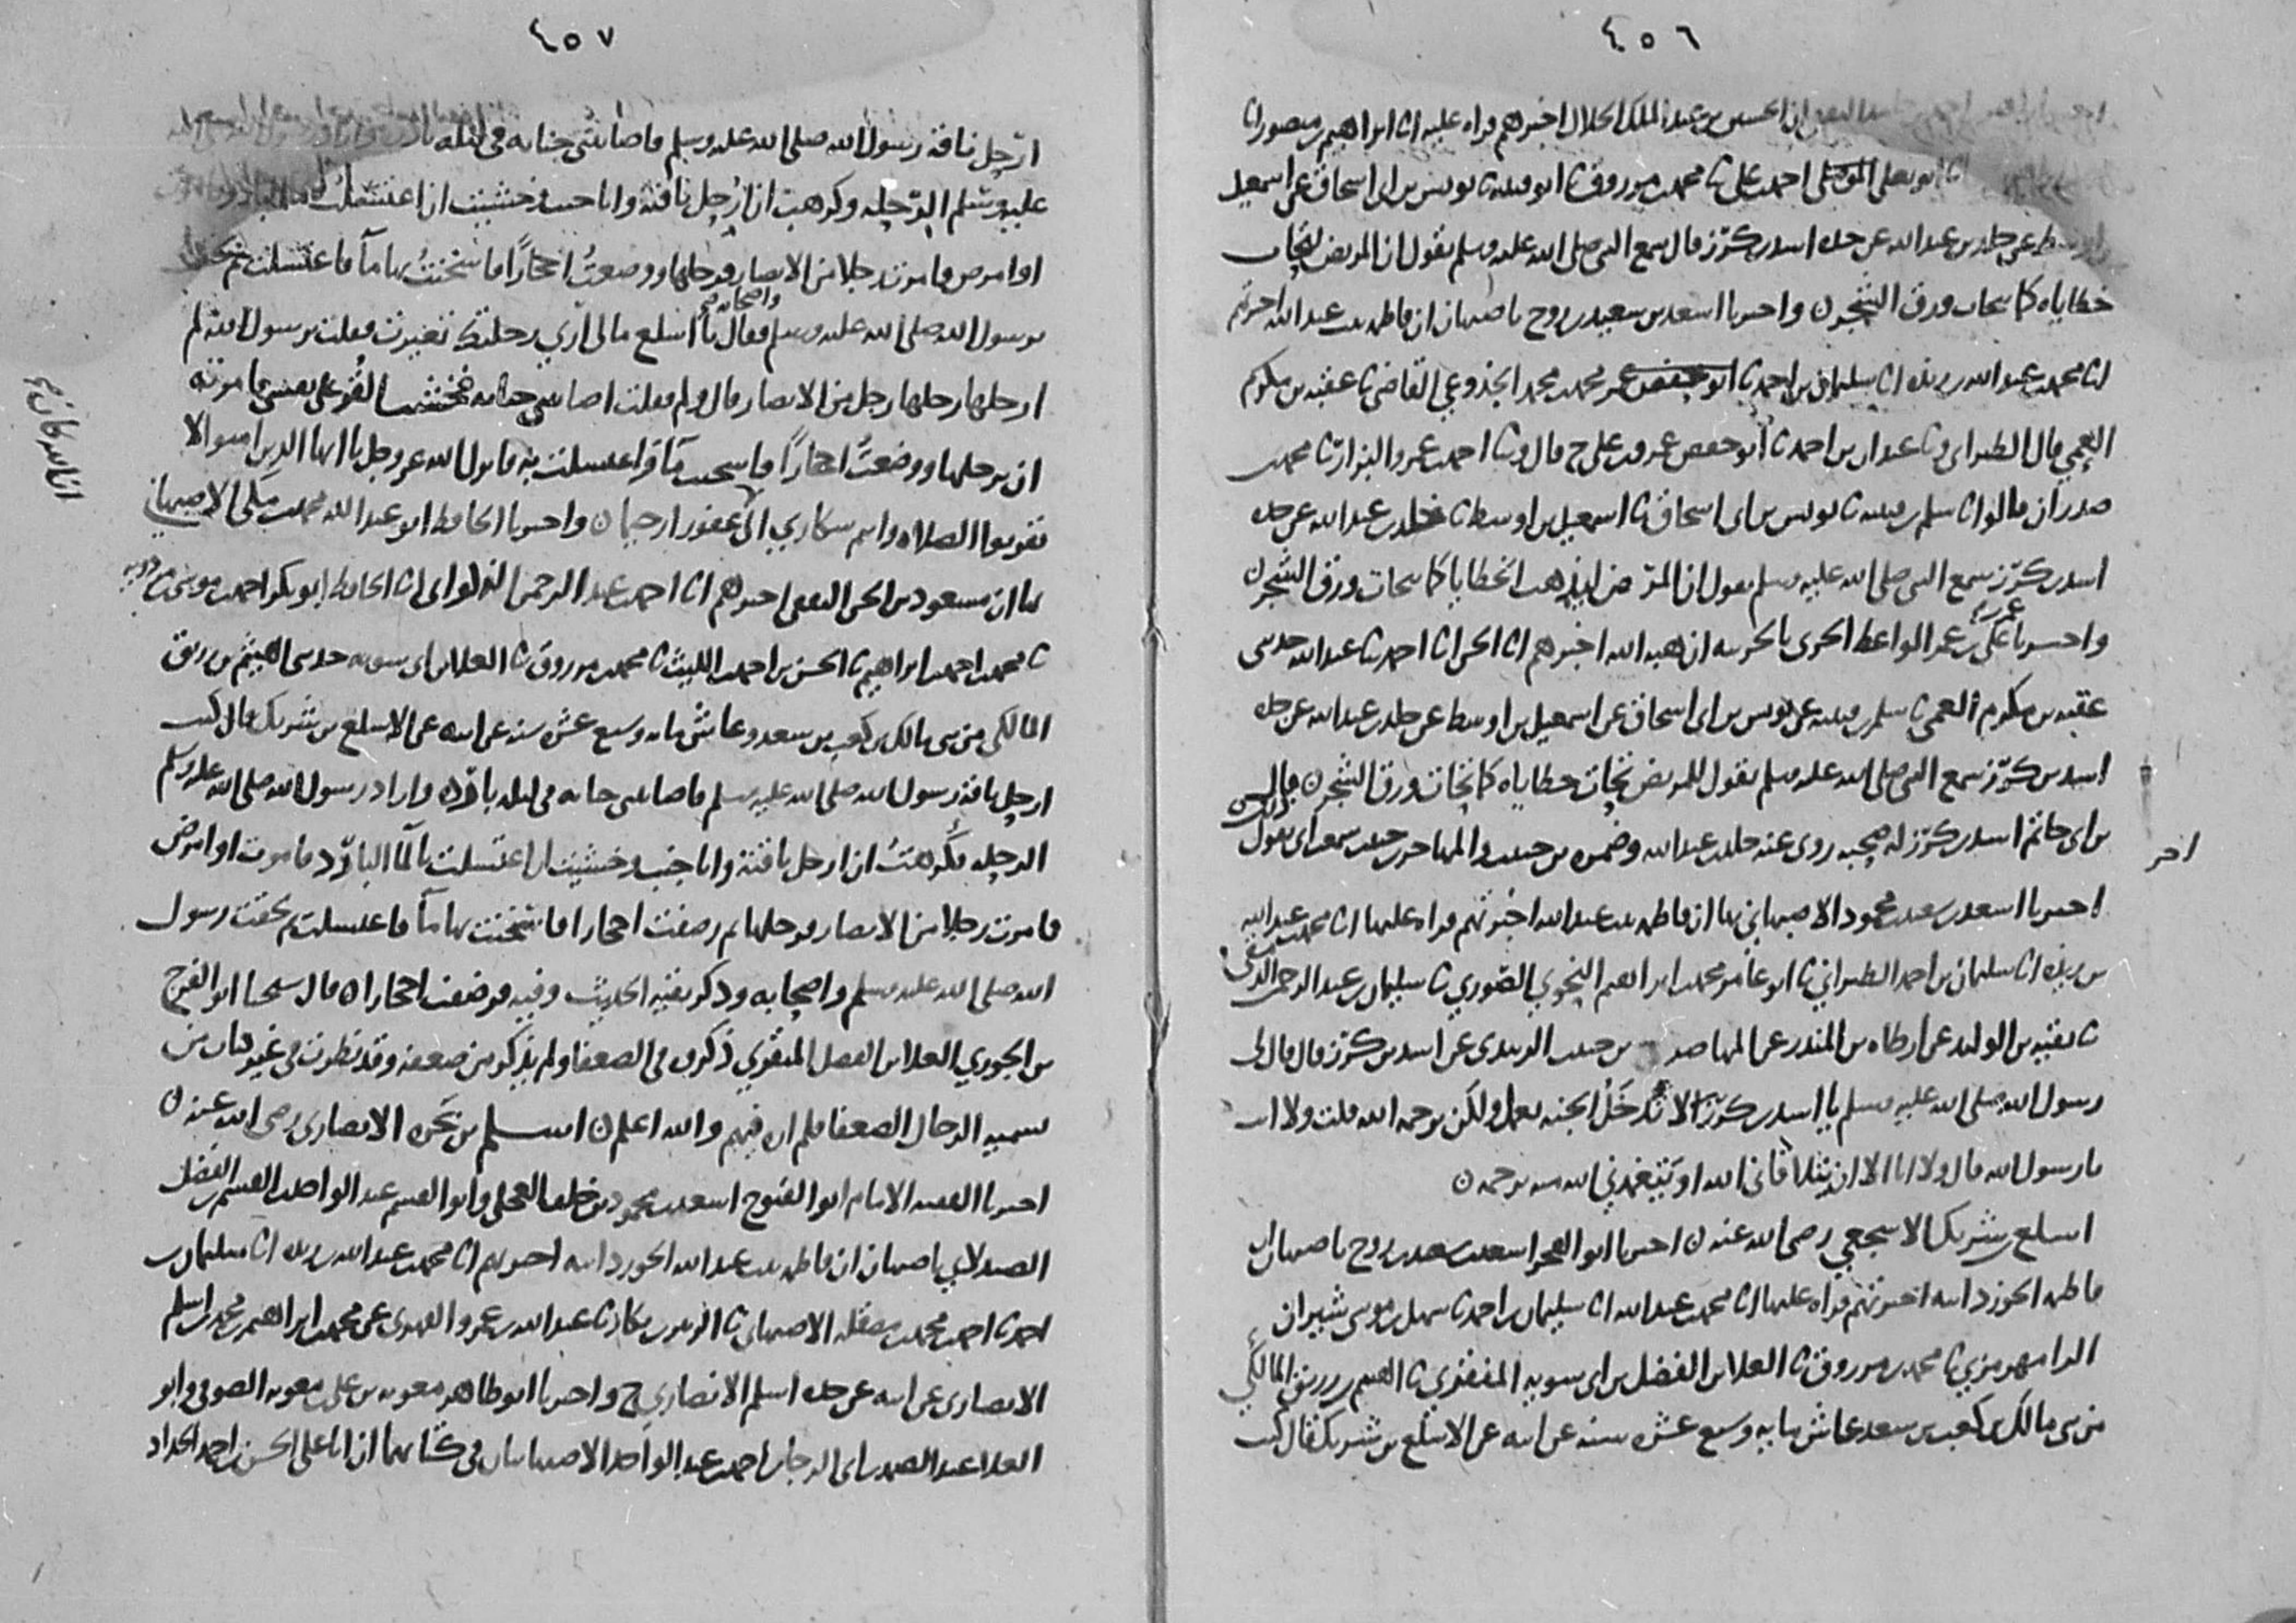 ٤٥٦
ان الحسين بن عبد الملك الخلال اخبرهم قراه عليه انا ابراهيم بن منصور انا
انا ابو يعلى الموصلي احمد بن علي نا محمد بن مرزوق نا ابو قتيبه نا يونس بن ابي اسحاق عن اسمعيل
عن خالد بن عبد الله عن جده اسد بن كرز قال سمع النبي صلى الله عليه وسلم يقول ان المريض تتحات
خطاياه كما يتحات ورق الشجر ن واخبرنا اسعد بن سعيد بن روح باصبهان ان فاطمه بنت عبد الله اخبرتهم
انا محمد بن عبد الله بن ريذه انا سليمان بن احمد نا محمد بن محمد الجذوعي القاضي نا عقبه بن مكرم
العمي قال الطبراني ونا عبدان بن احمد نا ابو حفص عمرو بن علي ح قال ونا احمد بن عمرو البزار نا محمد بن
صدران قالوا نا سلم بن قتيبه نا يونس بن ابي اسحاق نا اسمعيل بن اوسط نا خالد بن عبد الله عن جده
اسد بن كرز سمع النبي صلى الله عليه وسلم يقول ان المرض ليذهب الخطايا كما يتحات ورق الشجر ن
واخبرنا علي بن عمر الواعظ الحربي بالحربيه ان هبه الله اخبرهم انا الحسن انا احمد نا عبد الله حدثني
عقبه بن مكرم العمي نا سلم بن قتيبه عن يونس بن ابي اسحاق عن اسمعيل بن اوسط عن خالد بن عبد الله عن جده
اسد بن كرز سمع النبي صلى الله عليه وسلم يقول المريض تحات خطاياه كما تحات ورق الشجر ن قال
بن ابي حاتم اسد بن كرز له صحبه روى عنه خالد بن عبد الله وضمره بن حبيب والمهاصر بن حبيب سمعت ابي يقول ذلك
اخر
اخبرنا اسعد بن سعيد بن محمود الاصبهاني بها ان فاطمه بنت عبد الله اخبرتهم قراه عليها انا محمد بن عبد الله
بن ريذه انا سليمان بن احمد الطبراني نا ابو عامر محمد بن ابراهيم النحوي الصوري نا سليمان بن عبد الرحمن الدمشقي
نا بقيه بن الوليد عن ارطاه بن المنذر عن المهاصر بن حبيب الزبيدي عن اسد بن كرز قال قال لي
رسول الله صلى الله عليه وسلم يا اسد بن كرز لا تدخل الجنه بعمل ولكن برحمه الله قلت ولا انت
يا رسول الله قال ولا انا الا ان يتلافاني الله او يتغمدني الله منه برحمه ن
اسلع بن شريك الاشجعي رضي الله عنه ن اخبرنا ابو الفخر اسعد بن سعيد بن روح باصبهان ان
فاطمه الجوزدانيه اخبرتهم قراه عليها انا محمد بن عبد الله انا سليمان بن احمد نا سهل بن موسى شيران
الرامهرمزي نا محمد بن مرزوق نا العلا بن الفضل بن ابي سويه المنقري نا الهيثم بن رزيق المالكي
من بني مالك بن كعب بن سعد عاش مايه وسبع عشره سنه عن ابيه عن الاسلع بن شريك قال كنت
٤٥٧
ارحل ناقه رسول الله صلى الله عليه وسلم فاصابتني جنابه في ليله
عليه وسلم الرحله وكرهت ان ارحل ناقته وانا جنب وخشيت ان اغتسلت بالما البارد
اموت او امرض فامرت رجلا من الانصار فرحلها ووضعت احجارا فاسخنت بها ما فاغتسلت ثم لحقت
برسول الله صلى الله عليه وسلم واصحابه صح فقال يا اسلع مالي ارى رحلتك تغيرت فقلت يرسول الله لم
ارحلها رحلها رجل من الانصار قال ولم فقلت اصابتني جنابه فخشيت القر على نفسي فامرته
ان يرحلها ووضعت احجارا فاسخنت ما واغتسلت به فانزل الله عز وجل يا ايها الذين امنوا لا
تقربوا الصلاه وانتم سكارى الى غفورا رحيما ن واخبرنا الحافظ ابو عبد الله محمد بن مكي الاصبهاني
بها ان مسعود بن الحسن الثقفي اخبرهم انا احمد بن عبد الرحمن الذكواني انا الحافظ ابو بكر احمد بن موسى بن مردويه
نا محمد بن احمد بن ابراهيم نا الحسن بن احمد بن الليث نا محمد بن مرزوق نا العلا بن ابي سويه حدثني الهيثم بن رزيق
المالكي من بني مالك بن كعب بن سعد وعاش مايه وسبع عشره سنه عن ابيه عن الاسلع بن شريك قال كنت
ارحل ناقه رسول الله صلى الله عليه وسلم فاصابتني جنابه في ليله بارده واراد رسول الله صلى الله عليه وسلم
الرحله فكرهت ان ارحل ناقته وانا جنب وخشيت ان اغتسلت بالما البارد فاموت او امرض
فامرت رجلا من الانصار فرحلها ثم رضفت احجارا فاسخنت بها ما فاغتسلت ثم لحقت رسول
الله صلى الله عليه وسلم واصحابه وذكر بقيه الحديث وفيه فرضفت احجارا ن قال شيخنا ابو الفرج
بن الجوزي العلا بن الفضل المنقري ذكره في الضعفا ولم يذكر من ضعفه وقد نظرت في غير كتاب من
تسميه الرجال الضعفا فلم اره فيهم والله اعلم ن اسلم بن بجره الانصاري رضي الله عنه ن
اخبرنا الفقيه الامام ابو الفتوح اسعد بن محمود بن خلف العجلي وابو القسم عبد الواحد بن القسم بن الفضل
الصيدلاني باصبهان ان فاطمه بنت عبد الله الجوزدانيه اخبرتهم انا محمد بن عبد الله بن ريذه انا سليمان بن
احمد نا احمد بن محمد بن مصقله الاصبهاني نا الزبير بن بكار نا عبد الله بن عمرو الفهري عن محمد بن ابراهيم بن محمد بن اسلم
الانصاري عن ابيه عن جده اسلم الانصاري ح واخبرنا ابو طاهر معويه بن علي بن معويه الصوفي وابو
العلا عبد الصمد بن ابي الرجا بن احمد بن عبد الواحد الاصبهانيان في كتابهما ان ابا علي الحسن بن احمد الحداد